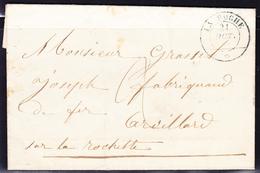 LA ROCHE
21
Monsieur Grasset
joseph fabriquand
de fer
Arvillard
sur la rochette